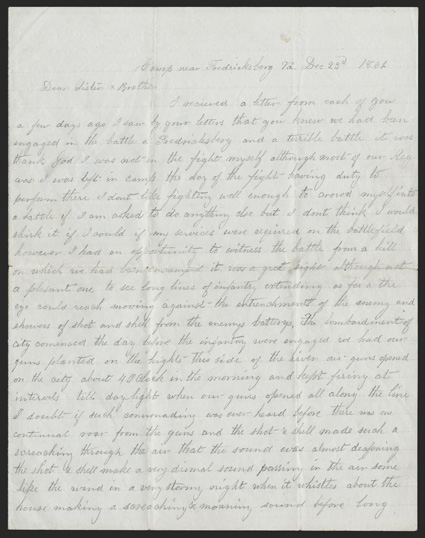 Camp near Fredricksberg Va Dec 23d 1862
Dear Sister & Brother
I recieved a letter from each of you
a few days ago I saw by your letters that you knew we had been
engaged in the battle a Fredricksberg and a terrible battle it was
thank God I was not in the fight myself although most of our Reg
was I was left in camp the day of the fight having duty to
perform there I dont like fighting well enough to crowd myself into
a battle if I am asked to do anything else but I dont think I would
shirk it if I could if my services were required on the battlefield
however I had an opportunity to witness the battle from a hill
on which we had been encamped it was a great sight although not
a pleasant one to see long lines of infantry extending as far as the
eye could reach moving against the entrenchments of the enemy and
showers of shot and shell from the enemys batterys, The bombardment of
city comenced the day before the infantry were engaged we had our
guns planted on the hights this side of the river our guns opened
on the city about 4 OClock in the morning and kept fireing at
intervals till daylight when our guns opened all along the line
I doubt if such cannonading was ever heard before there was one
continual roar from the guns and the shot & shell made such a
screaching through the air that the sound was almost deafning
the shot & shell make a very dismal sound passing in the air some
like the wind in a very stormy night when it whistles about the
house making a screaching & moaning sound before long